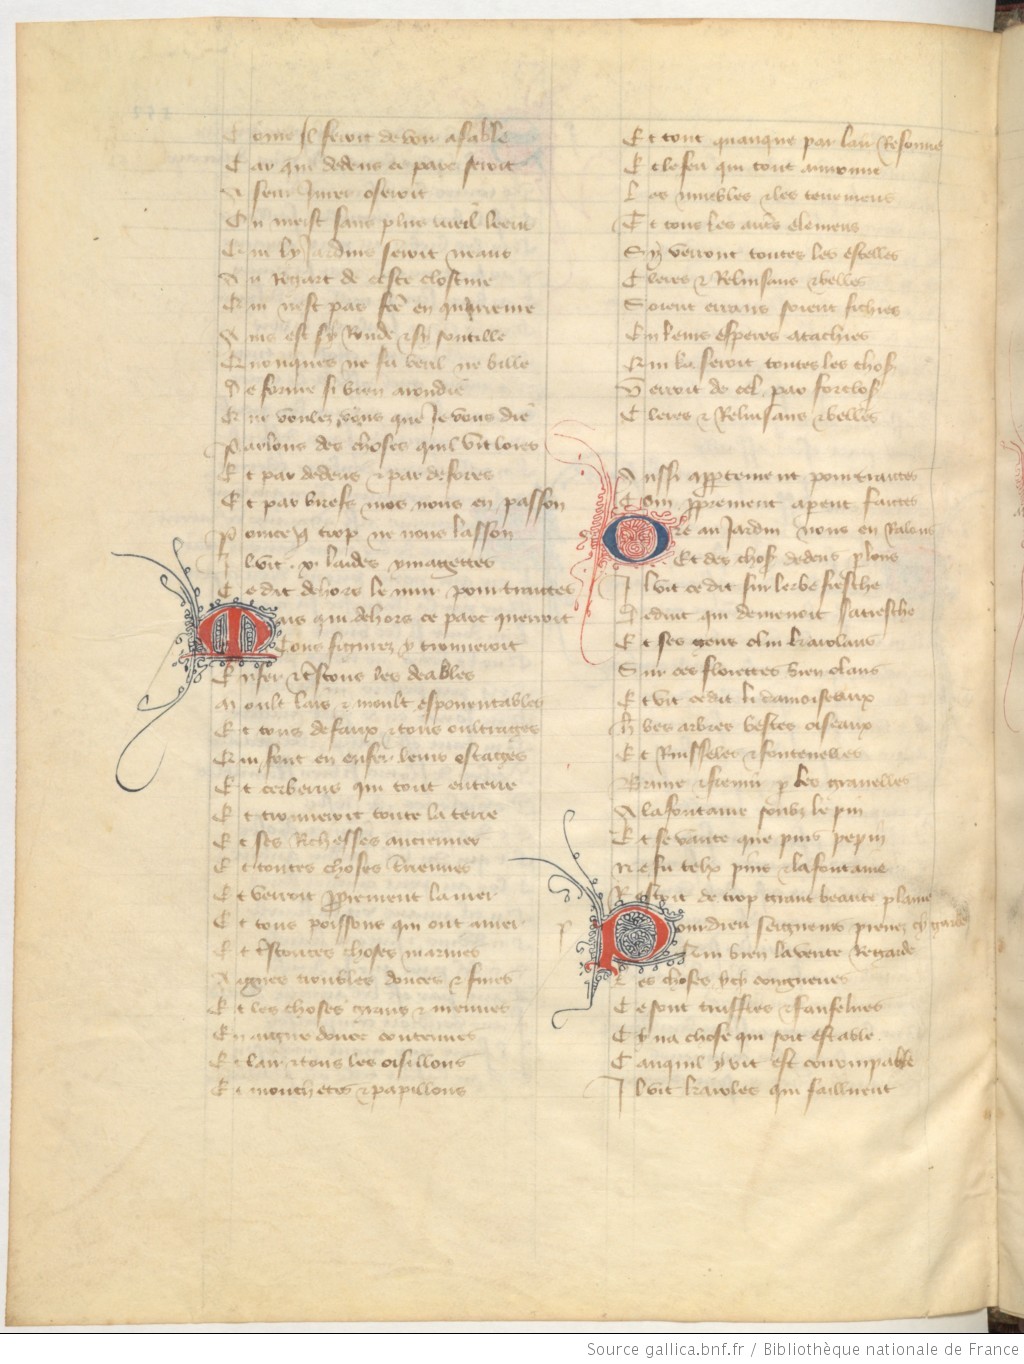 Come Il seroit de voir a fable
Car qui dedens ce parc seroit
A seur Jurer oseroit
Ou meist sans plus lueil leens
Que ly Jardins seroit neans
Au Regart de ceste closture
Qui nest pas fce en quarreure
Ains est sy Ronde & sy soutille
Quonques ne fu beril ne bille
De forme si bien arondie
Que voulez vous que Je vous die
Parlons des choses quil vit lores
Et par dedens & par defores
Et par briefs mos nous en passon
Pource q trop ne nous lasson
Il vit .x. laides ymagettes
Ce dit dehors le mur pourtraittes
Mais qui dehors ce parc querroit
Tous figurez y trouueroit
Enfer & trestous les deables
Moult lais & moult espouentables
Et tous defaux & tous oultrages
Qui font en enfer leurs estages
Et cerberus qui tout enserre
Et trouueroit toute la terre
Et ses Richesses anciennes
Et toutes choses terriennes
Et verroit proprement la mer
Et tous poissons qui ont amer
Et trestoutes choses marines
Aigues troubles douces & fines
Et les choses grans & menues
En aigue douce contenues
Et lair & tous les oisillons
Et mouchetes & papillons
Et tout quanque par lair Resonne
Et le feu qui tout auironne
Les muebles & les tenemens
Et tous les autres elemens
Sy verront toutes les estelles
Cleres & Reluisans & belles
Soient errans soient fichies
En leurs esperes atachies
Qui la seroit toutes les chos
Verroit de cel parc forclos
Cleres & Reluisans & belles
Aussi appertement pourtraites
Com proprement apent faittes
Ore au Jardin nous en Ralons
Et des chos dedens plons
Il vit ce dit sur lerbe fresche
Deduit qui demenoit sa tresche
Et ses gens o lui karolans
Sur ces florettes bien olans
Et vit ce dit li damoiseaux
Herbes arbres bestes oiseaux
Et Ruisseles & fontenelles
Bruire & fremir p les grauelles
A la fontaine soubz le pin
Et se vante que puis pepin
Ne fu telx pins & la fontaine
Restoit de trop grant beaute plaine
Pour dieu seigneurs prenez cy garde
Qui bien la verite Regarde
Les choses ycy contenues
Ce sont truffles & fanfelues
Cy na chose qui soit estable
Canquil y vit est corrompable
Il vit karoles qui faillirent